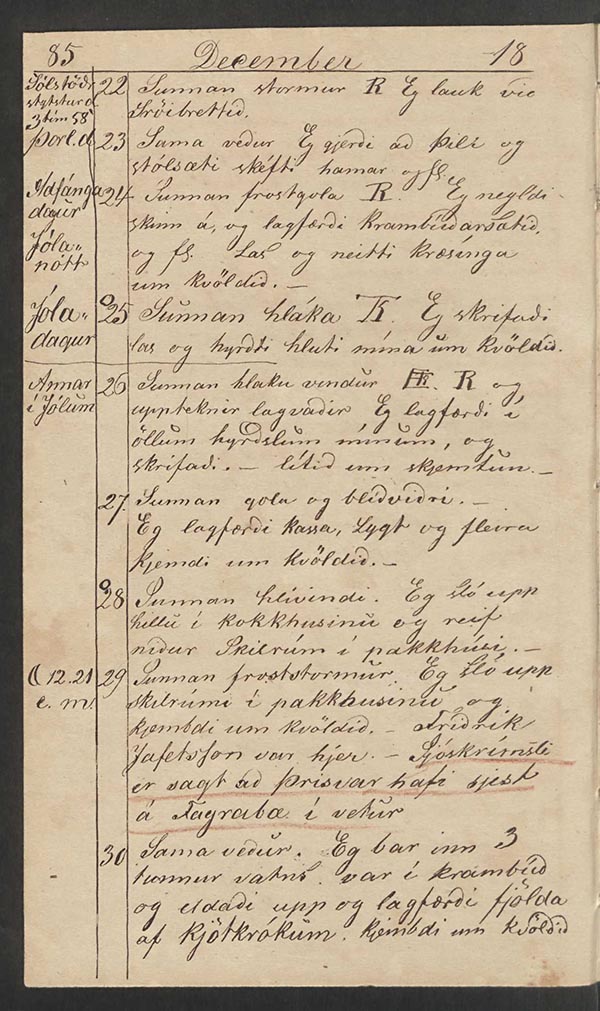 85 December 18
Sólstöðr 22 Sunnan stormur R Eg lauk við
stystur d
3 tím 58' brettid.
Þorl.d 23 Sama veður Eg gjerði að Þili og
stólsæti skéfti hamar og fl.
Adfánga 24 Sunnan frostgola R. Eg negldi
dagur skinn á, og lagfærdi krambúdar
Jóla- og fl. Las og neitti kræsinga
nótt um kvöldid. —
Jóla- 25 Sunnan hláka Eg skrifadi
dagur las og hyrdti hluti mína um kvöldid.
Annar 26 Sunnan hláku vindur R og
í Jólum uppteknir lagvadir Eg lagfærdi í
öllum hyrdslum mínum, og
skrifadi. — lítid um skjemtun. —
27. Sunnan gola og blídvidri. —
Eg lagfærdi kassa, Lygt og fleira
kjemdi um kvöldid. —
28 Sunnan hlívindi. Eg sló upp
hillu í kokkhusinu og reif
nidur Skilrúm í pakkhúsi. —
12.21 29 Sunnan froststormur. Eg sló upp
e. m. skilrúmi í pakkhusinu og
kjembdi um kvöldid. — Fridrik
Jafetsson var hjer. — Sjóskrímsli
er sagt ad þrisvar hafi sjest
á Fagrabæ í vetur
30 Sama vedur. Eg bar inn 3
tunnur vatns. var í krambúd
og eldadi upp og lagfærdi fjölda
af kjötkrókum. kjembdi um kvöldid